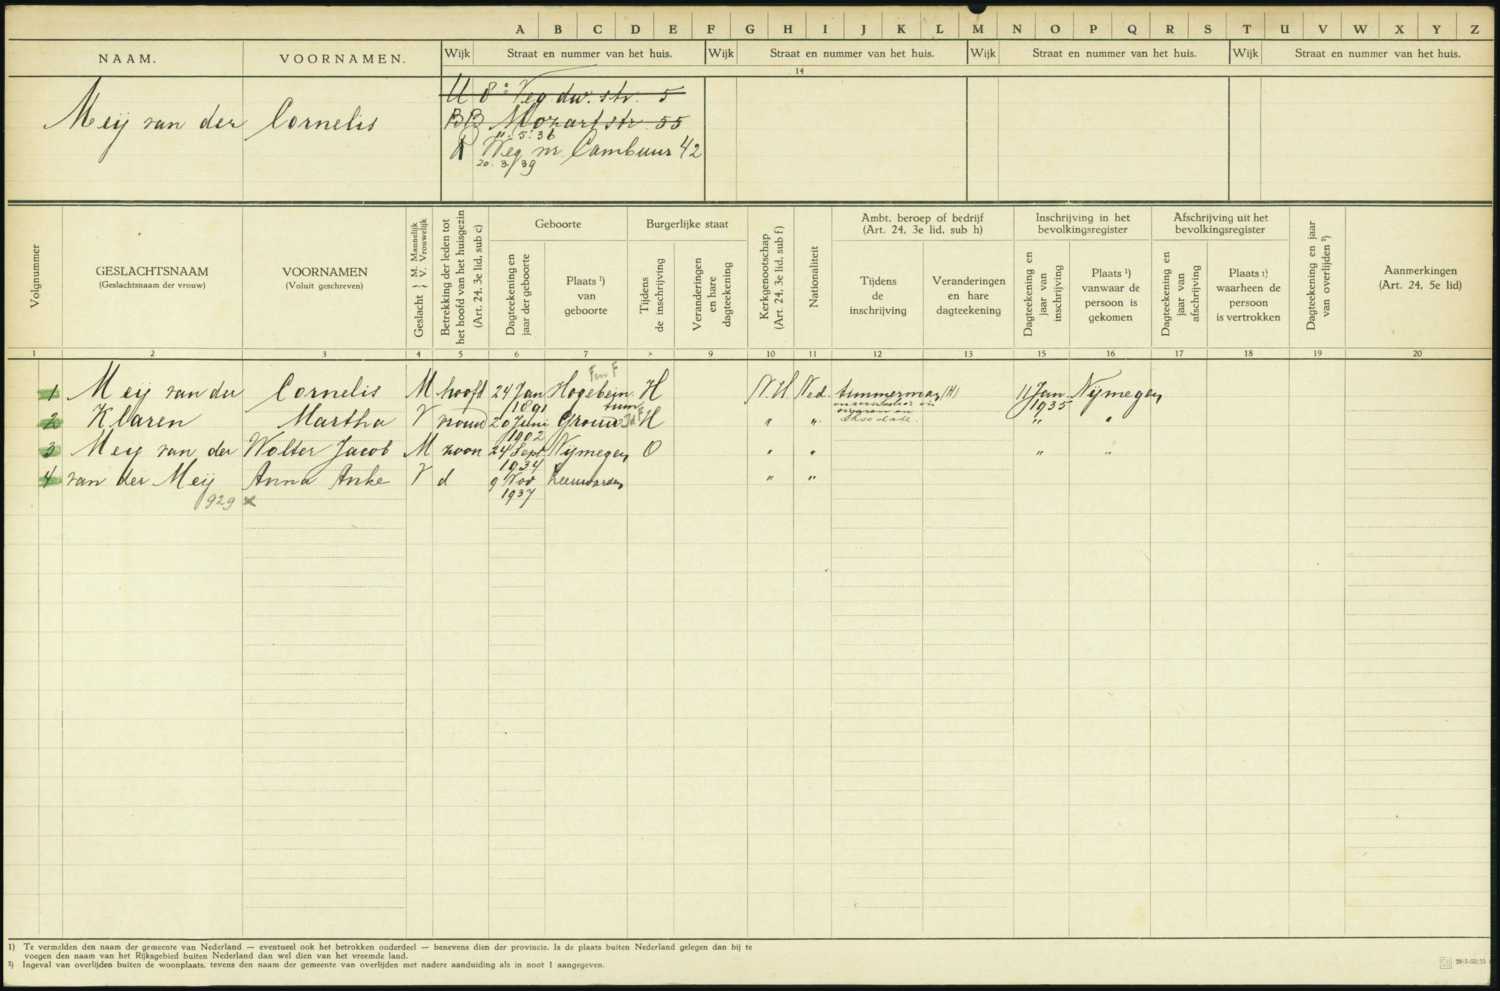 A B C D E F G H I J K L M N O P Q R S T U V W X Y Z
NAAM. VOORNAMEN. Wijk Straat en nummer van het huis. Wijk Straat en nummer van het huis. Wijk Straat en nummer van het huis. Wijk Straat en nummer van het huis.
14
U 8e Veg. dw. str. 5
Meij van der Cornelis BB Mozartstr. 55
11.5.36
Weg nr Cambuur 42
20.3/39
Volgnummer
GESLACHTSNAAM
(Geslachtsnaam der vrouw)
VOORNAMEN
(Voluit geschreven)
Geslacht { M. Mannelijk V. Vrouwelijk
Betrekking der leden tot het hoofd van het huisgezin (Art. 24, 3e lid, sub c)
Geboorte
Dagteekening en jaar der geboorte
Plaats ¹) van geboorte
Burgerlijke staat
Tijdens de inschrijving
Veranderingen en hare dagteekening
Kerkgenootschap (Art. 24, 3e lid, sub f)
Nationaliteit
Ambt. beroep of bedrijf
(Art. 24, 3e lid, sub h)
Tijdens de inschrijving
Veranderingen en hare dagteekening
Inschrijving in het bevolkingsregister
Dagteekening en jaar van inschrijving
Plaats ¹) vanwaar de persoon is gekomen
Afschrijving uit het bevolkingsregister
Dagteekening en jaar van afschrijving
Plaats ¹) waarheen de persoon is vertrokken
Dagteekening en jaar van overlijden ²)
Aanmerkingen
(Art. 24, 5e lid)
1 2 3 4 5 6 7 8 9 10 11 12 13 15 16 17 18 19 20
1 Meij van der Cornelis M hoofd 24 Jan 1891 Hogebeintum H N.H Ned. timmerman (H) 11 Jan 1935 Nijmegen
2 Klaren Martha V vrouw 20 Juni 1902 Grouw Id F H " " " "
3 Meij van der Wolter Jacob M zoon 24 Sept 1934 Nijmegen O " " " "
4 van der Meij Anna Anke V d 9 Nov 1937 Leeuwarden " "
929
1) Te vermelden den naam der gemeente van Nederland — eventueel ook het betrokken onderdeel — benevens dien der provincie. Is de plaats buiten Nederland gelegen dan bij te
voegen den naam van het Rijksgebied buiten Nederland dan wel dien van het vreemde land.
²) Ingeval van overlijden buiten de woonplaats, tevens den naam der gemeente van overlijden met nadere aanduiding als in noot 1 aangegeven.